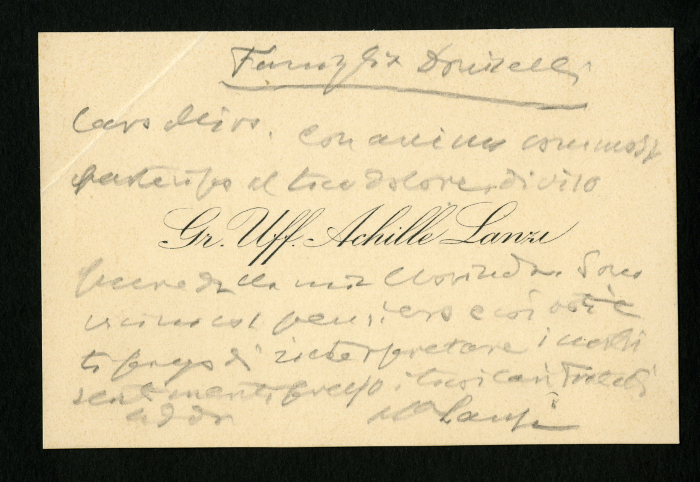 Famiglia Donizelli
Caro Piero. Con animo commosso
partecipo al tuo dolore, diviso
Gr. Uff. Achille Lanzi
pure dalla mia Clorinda. Sono
vicino col pensiero e voi tutti e
ti prego di interpretare i nostri
sentimenti presso i tuoi cari Fratelli
Lanzi